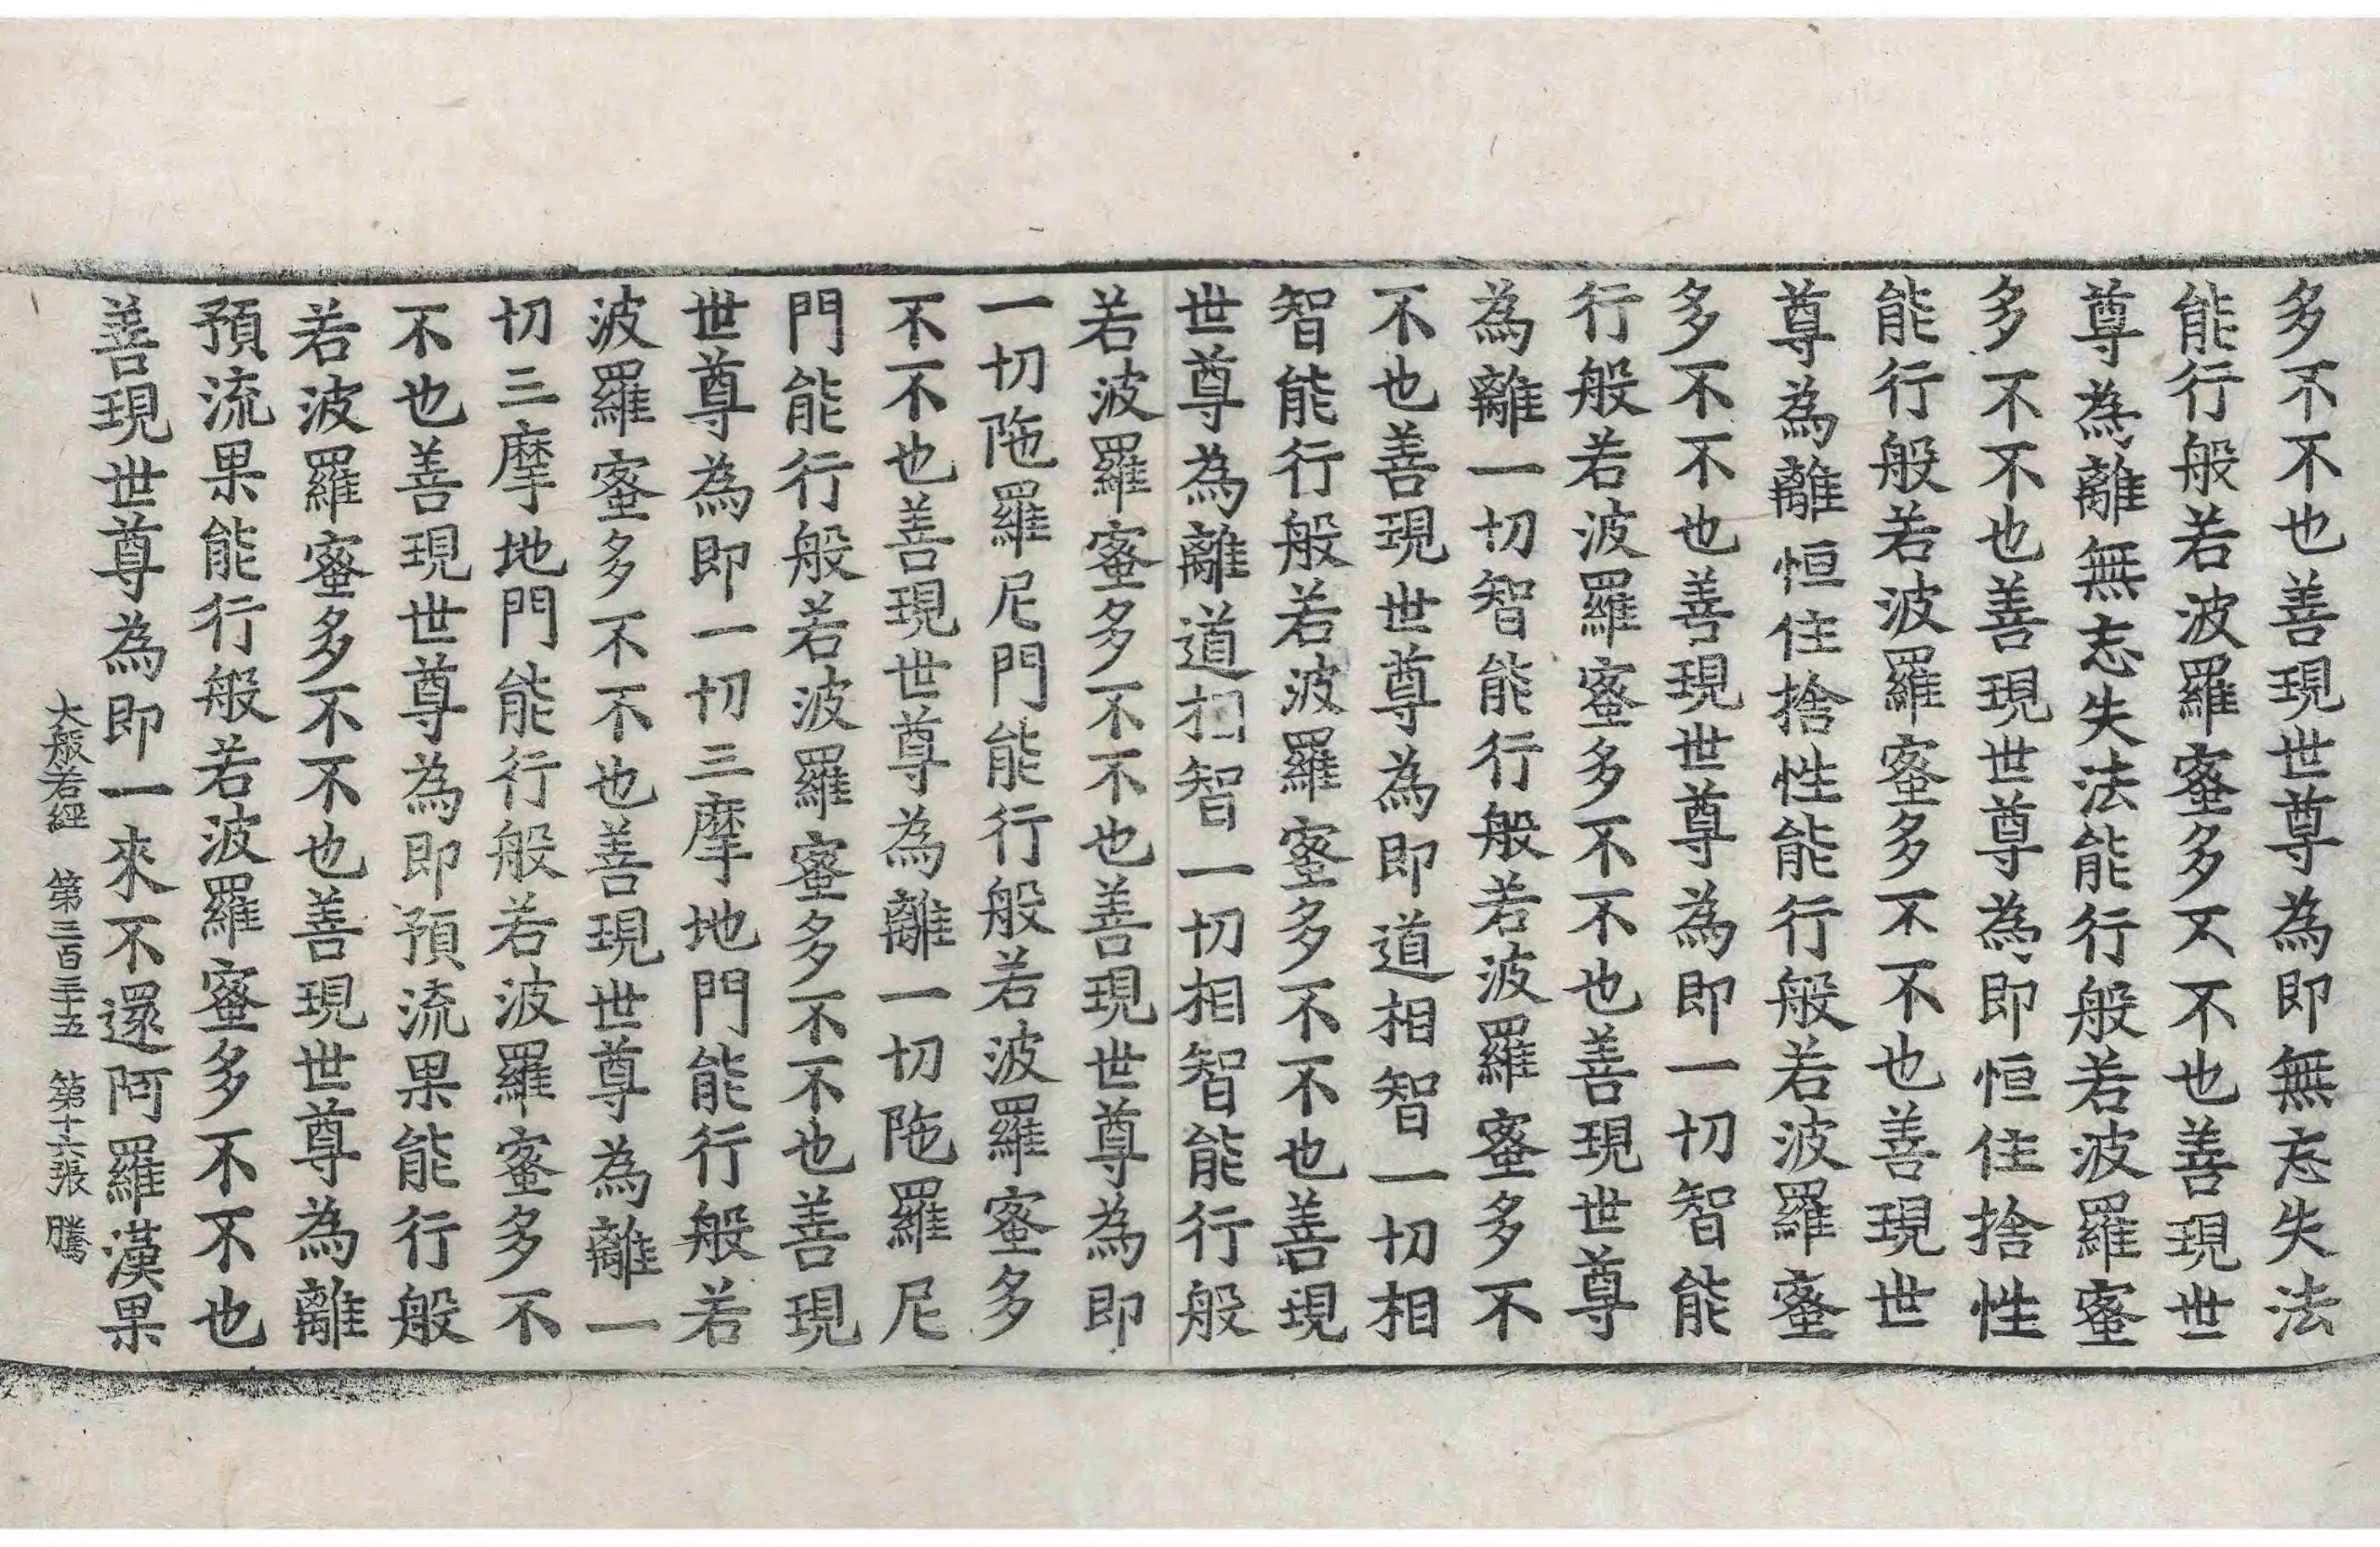 多不不也善現世尊為即無忘失法
能行般若波羅蜜多不不也善現世
尊為離無忘失法能行般若波羅蜜
多不不也善現世尊為即恒住捨性
能行般若波羅蜜多不不也善現世
尊為離恒住捨性能行般若波羅蜜
多不不也善現世尊為即一切智能
行般若波羅蜜多不不也善現世尊
為離一切智能行般若波羅蜜多不
不也善現世尊為即道相智一切相
智能行般若波羅蜜多不不也善現
世尊為離道相智一切相智能行般
若波羅蜜多不不也善現世尊為即
一切陁羅尼門能行般若波羅蜜多
不不也善現世尊為離一切陁羅尼
門能行般若波羅蜜多不不也善現
世尊為即一切三摩地門能行般若
波羅蜜多不不也善現世尊為離一
切三摩地門能行般若波羅蜜多不
不也善現世尊為即預流果能行般
若波羅蜜多不不也善現世尊為離
預流果能行般若波羅蜜多不不也
善現世尊為即一來不還阿羅漢果
大般若經 第三百三十五 第十六張 騰